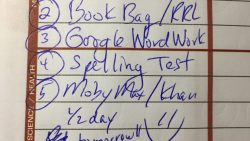 ② Book Bag / RRL
③ Google Word Work
④ Spelling Test
⑤ Moby Max / Khan
1/2 day
tomorrow!!
SCIENCE / HEALTH